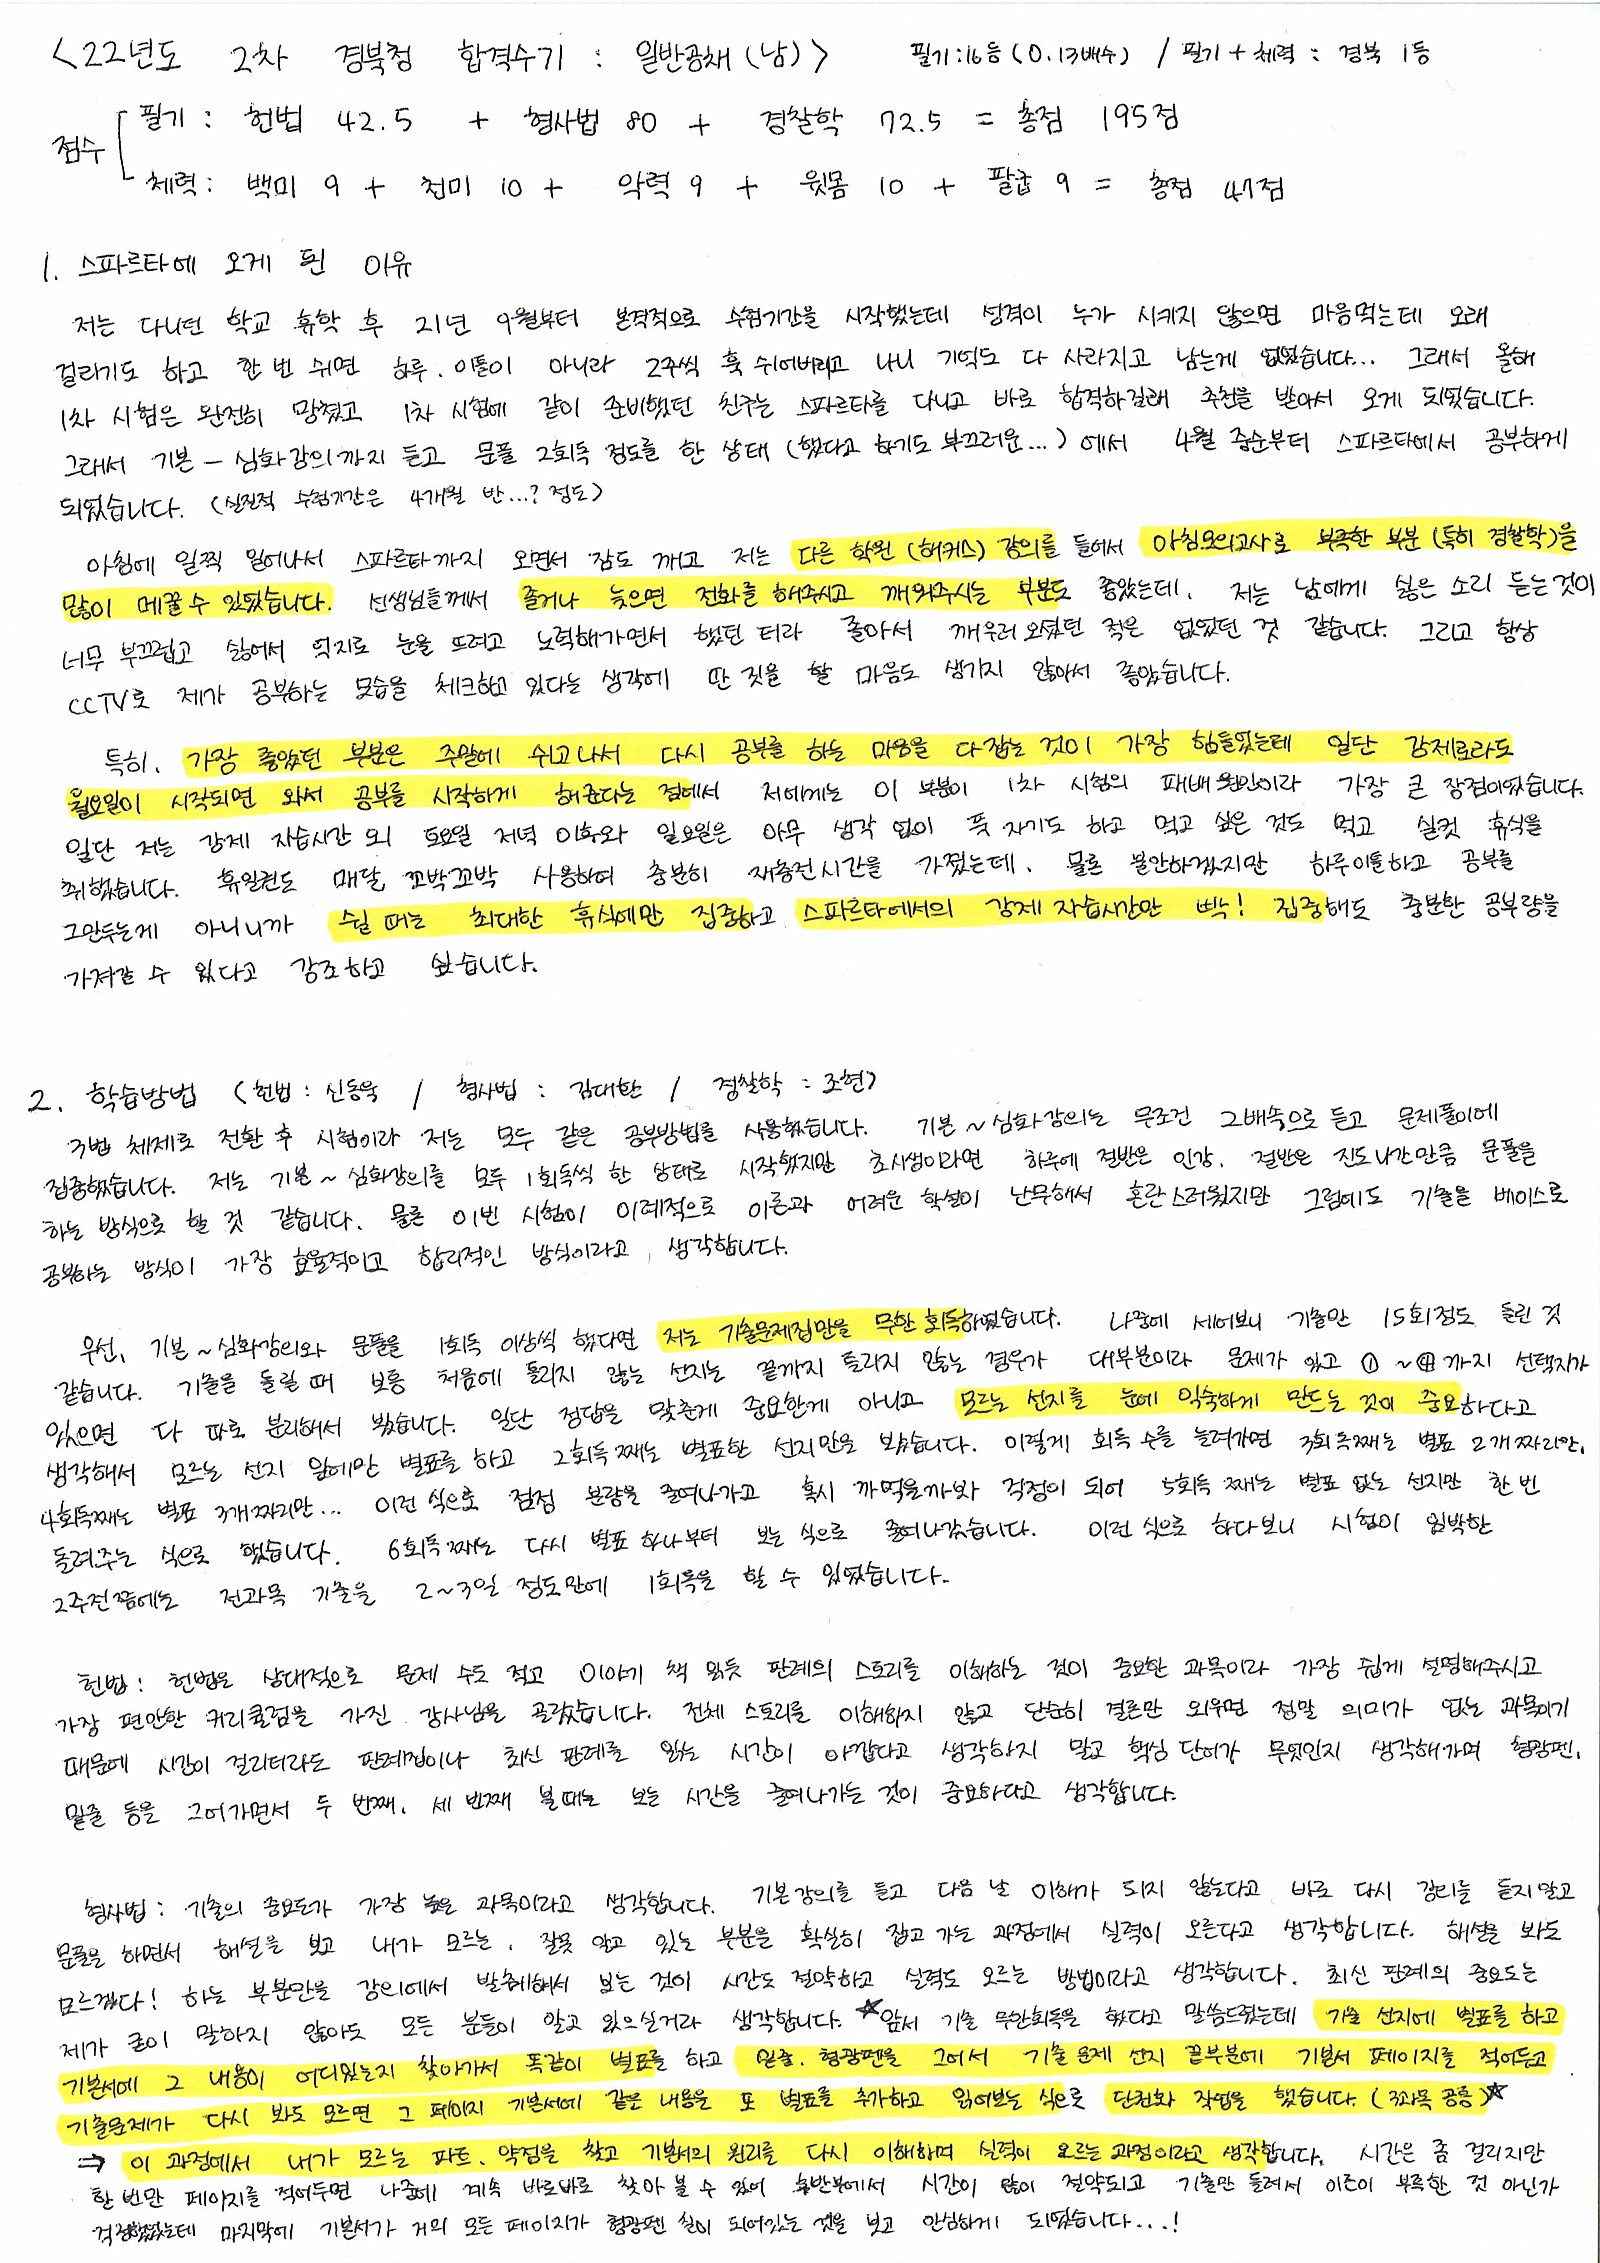 <22년도 2차 경북청 합격수기 : 일반공채(남)> 필기:16등(0.13배수) / 필기+체력 : 경북 1등
점수
필기 : 헌법 42.5 + 형사법 80 + 경찰학 72.5 = 총점 195점
체력 : 백미 9 + 천미 10 + 악력 9 + 윗몸 10 + 팔굽 9 = 총점 47점
1. 스파르타에 오게 된 이유
저는 다니던 학교 휴학 후 21년 9월부터 본격적으로 수험기간을 시작했는데 성격이 누가 시키지 않으면 마음먹는데 오래
걸리기도 하고 한 번 쉬면 하루. 이틀이 아니라 2주씩 훅 쉬어버리고 나니 기억도 다 사라지고 남는게 없었습니다... 그래서 올해
1차 시험은 완전히 망쳤고 1차 시험에 같이 준비했던 친구는 스파르타를 다니고 바로 합격하길래 추천을 받아서 오게 되었습니다.
그래서 기본 - 심화강의까지 듣고 문풀 2회독 정도를 한 상태 (했다고 하기도 부끄러운...) 에서 4월 중순부터 스파르타에서 공부하게
되었습니다. (실질적 수험기간은 4개월 반...? 정도)
아침에 일찍 일어나서 스파르타까지 오면서 잠도 깨고 저는 다른 학원 (해커스) 강의를 들어서 아침모의고사로 부족한 부분 (특히 경찰학)을
많이 메꿀 수 있었습니다. 선생님들께서 졸거나 늦으면 전화를 해주시고 깨워주시는 부분도 좋았는데. 저는 남에게 싫은 소리 듣는 것이
너무 부끄럽고 싫어서 억지로 눈을 뜨려고 노력해가면서 했던 터라 졸아서 깨우러 오셨던 적은 없었던 것 같습니다. 그리고 항상
CCTV로 제가 공부하는 모습을 체크하고 있다는 생각에 딴 짓을 할 마음도 생기지 않아서 좋았습니다.
특히. 가장 좋았던 부분은 주말에 쉬고나서 다시 공부를 하는 마음을 다잡는 것이 가장 힘들었는데 일단 강제로라도
월요일이 시작되면 와서 공부를 시작하게 해준다는 점에서 저에게는 이 부분이 1차 시험의 패배 원인이라 가장 큰 장점이었습니다.
일단 저는 강제 자습시간 외 토요일 저녁 이후와 일요일은 아무 생각 없이 푹 자기도 하고 먹고 싶은 것도 먹고 실컷 휴식을
취했습니다. 휴일권도 매달 꼬박꼬박 사용하여 충분히 재충전시간을 가졌는데. 물론 불안하겠지만 하루이틀하고 공부를
그만두는게 아니니까 쉴 때는 최대한 휴식에만 집중하고 스파르타에서의 강제 자습시간만 빡! 집중해도 충분한 공부량을
가져갈 수 있다고 강조하고 싶습니다.
2. 학습방법 (헌법 : 신동욱 / 형사법 : 김대환 / 경찰학 : 조현)
3법 체제로 전환 후 시험이라 저는 모두 같은 공부방법을 사용했습니다. 기본~심화강의는 무조건 2배속으로 듣고 문제풀이에
집중했습니다. 저는 기본~심화강의를 모두 1회독씩 한 상태로 시작했지만 초시생이라면 하루에 절반은 인강. 절반은 진도나간만큼 문풀을
하는 방식으로 할 것 같습니다. 물론 이번 시험이 이례적으로 이론과 어려운 학설이 난무해서 혼란스러웠지만 그럼에도 기출을 베이스로
공부하는 방식이 가장 효율적이고 합리적인 방식이라고 생각합니다.
우선, 기본~심화강의와 문풀을 1회독 이상씩 했다면 저는 기출문제집만을 무한 회독하였습니다. 나중에 세어보니 기출만 15회정도 돌린 것
같습니다. 기출을 돌릴 때 보통 처음에 틀리지 않는 선지는 끝까지 틀리지 않는 경우가 대부분이라 문제가 있고 ①~④까지 선택지가
있으면 다 따로 분리해서 봤습니다. 일단 정답을 맞춘게 중요한게 아니고 모르는 선지를 눈에 익숙하게 만드는 것이 중요하다고
생각해서 모르는 선지 앞에만 별표를 하고 2회독째는 별표한 선지만을 보았습니다. 이렇게 회독 수를 늘려가면 3회독째는 별표 2개 짜리만.
4회독째는 별표 3개짜리만... 이런 식으로 점점 분량을 줄여나가고 혹시 까먹을까봐 걱정이 되어 5회독 째는 별표 없는 선지만 한 번
돌려주는 식으로 했습니다. 6회독 째는 다시 별표 하나부터 보는 식으로 줄여나갔습니다. 이런 식으로 하다보니 시험이 임박한
2주전 쯤에는 전과목 기출을 2~3일 정도만에 1회독을 할 수 있었습니다.
헌법 : 헌법은 상대적으로 문제 수도 적고 이야기 책 읽듯 판례의 스토리를 이해하는 것이 중요한 과목이라 가장 쉽게 설명해주시고
가장 편안한 커리큘럼을 가진 강사님을 골랐습니다. 전체 스토리를 이해하지 않고 단순히 결론만 외우면 정말 의미가 없는 과목이기
때문에 시간이 걸리더라도 판례집이나 최신 판례를 읽는 시간이 아깝다고 생각하지 말고 핵심 단어가 무엇인지 생각해가며 형광펜.
밑줄 등을 그어가면서 두 번째. 세 번째 볼때는 보는 시간을 줄여나가는 것이 중요하다고 생각합니다.
형사법 : 기출의 중요도가 가장 높은 과목이라고 생각합니다. 기본강의를 듣고 다음 날 이해가 되지 않는다고 바로 다시 강의를 듣지말고
문풀을 하면서 해설을 보고 내가 모르는. 잘못 알고 있는 부분을 확실히 잡고 가는 과정에서 실력이 오른다고 생각합니다. 해설을 봐도
모르겠다! 하는 부분만을 강의에서 발췌해서 보는 것이 시간도 절약하고 실력도 오르는 방법이라고 생각합니다. 최신 판례의 중요도는
제가 굳이 말하지 않아도 모든 분들이 알고 있으실거라 생각합니다. ☆앞서 기출 무한회독을 했다고 말씀드렸는데 기출 선지에 별표를 하고
기본서에 그 내용이 어디있는지 찾아가서 똑같이 별표를 하고 밑줄. 형광펜을 그어서 기출문제 선지 끝부분에 기본서 페이지를 적어두고
기출문제가 다시 봐도 모르면 그 페이지 기본서에 같은 내용을 또 별표를 추가하고 읽어보는 식으로 단권화 작업을 했습니다. (3과목 공통)☆
⇒ 이 과정에서 내가 모르는 파트. 약점을 찾고 기본서의 원리를 다시 이해하며 실력이 오르는 과정이라고 생각합니다. 시간은 좀 걸리지만
한 번만 페이지를 적어두면 나중에 계속 바로바로 찾아 볼 수 있어 후반부에서 시간이 많이 절약되고 기출만 돌려서 이론이 부족한 것 아닌가
걱정했었는데 마지막에 기본서가 거의 모든 페이지가 형광펜 칠이 되어있는 것을 보고 안심하게 되었습니다...!